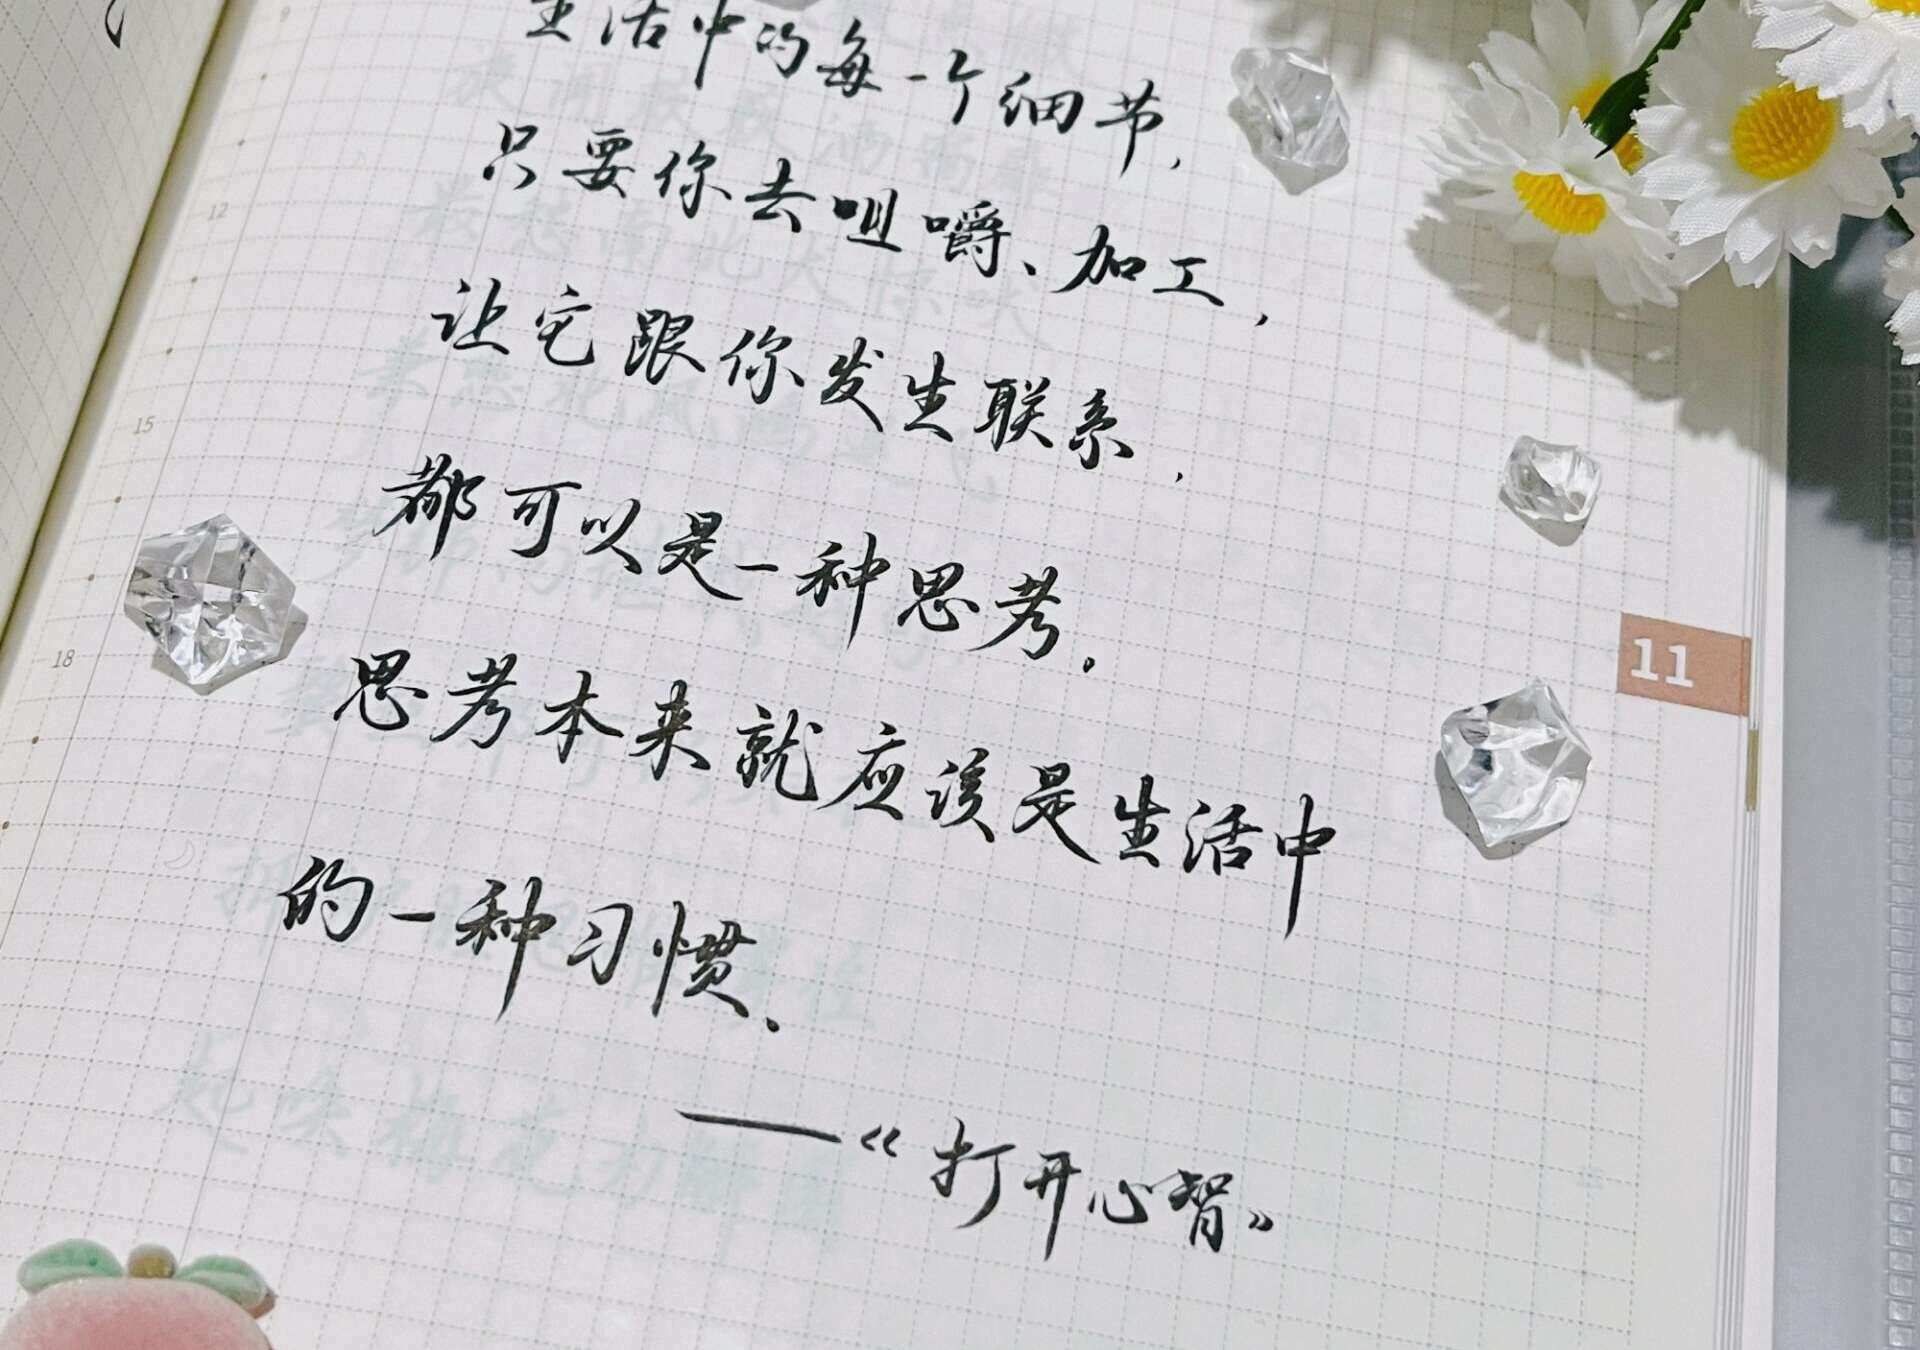 生活中的每一个细节，
只要你去咀嚼、加工，
让它跟你发生联系，
都可以是一种思考。
思考本来就应该是生活中
的一种习惯。
——《打开心智》
9
12
15
18
11